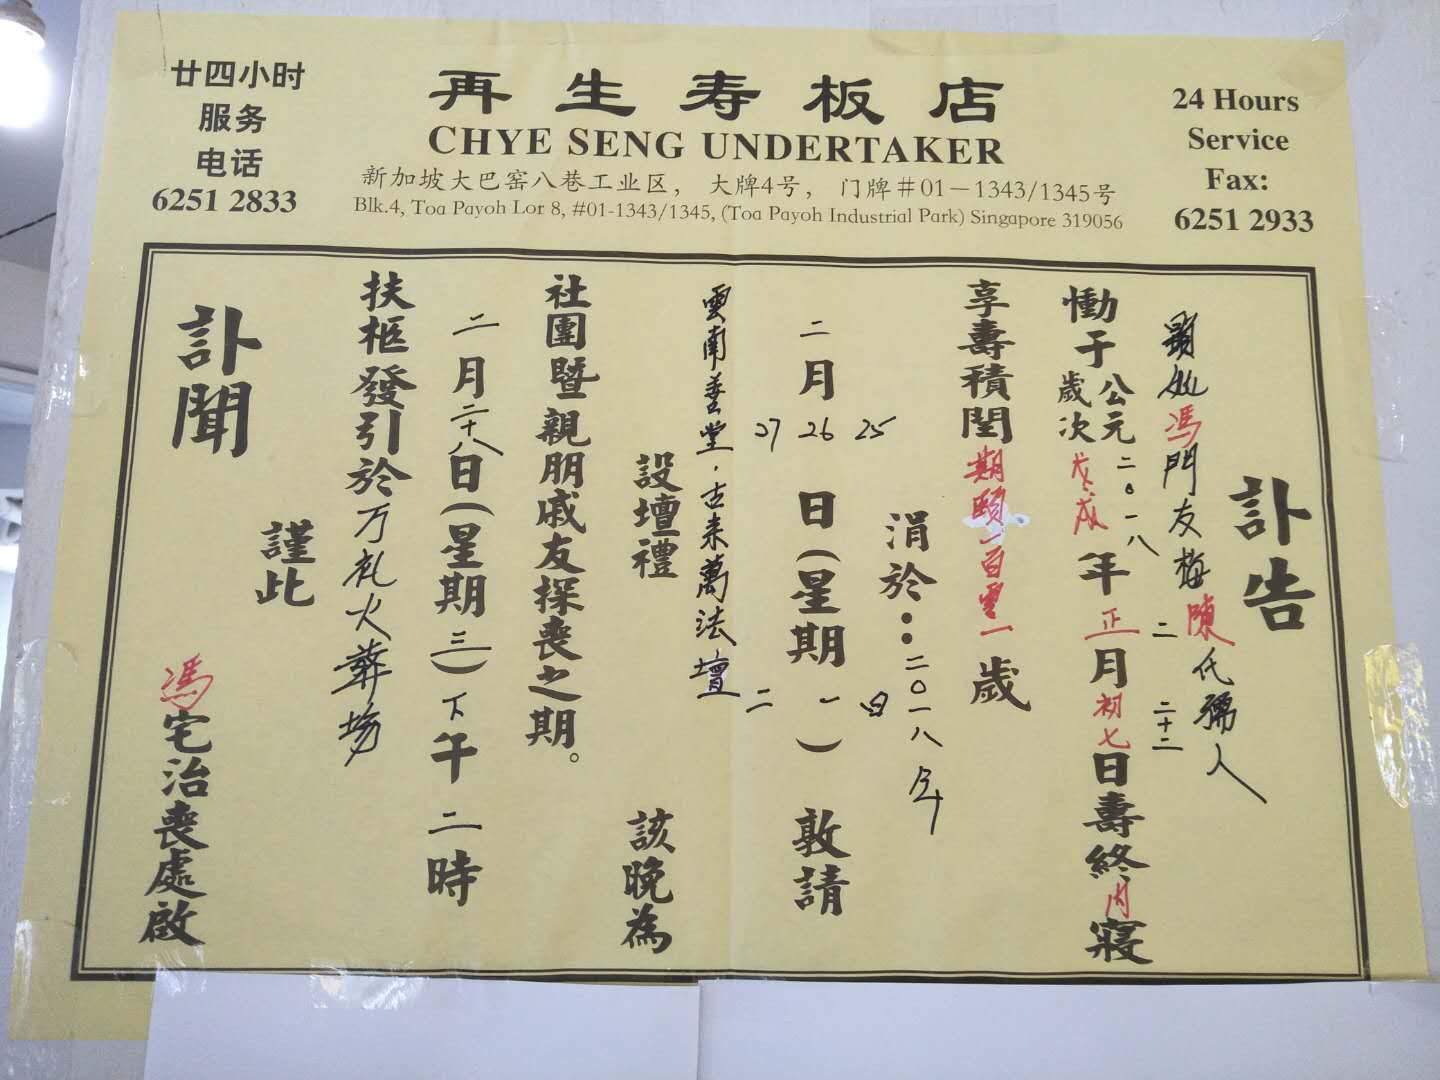 廿四小时
服务
电话
6251 2833
再生寿板店
CHYE SENG UNDERTAKER
新加坡大巴窑八巷工业区， 大牌4号， 门牌＃01－1343/1345号
Blk.4, Toa Payoh Lor 8, #01-1343/1345, (Toa Payoh Industrial Park) Singapore 319056
24 Hours
Service
Fax:
6251 2933
訃告
顯妣馮門友梅陳氏彌人
慟于公元二〇一八年二月二十二日壽終內寢
歲次戊戌 正 初七
享壽積閏期頤一百零一歲
涓於：二〇一八年
二月25 26 27日(星期日 一 二)敦請
雲南善堂．古来萬法壇
設壇禮 該晚為
社團暨親朋戚友探喪之期。
二月二十八日(星期三)下午二時
扶柩發引於万礼火葬場
謹此
訃聞
馮宅治喪處啟